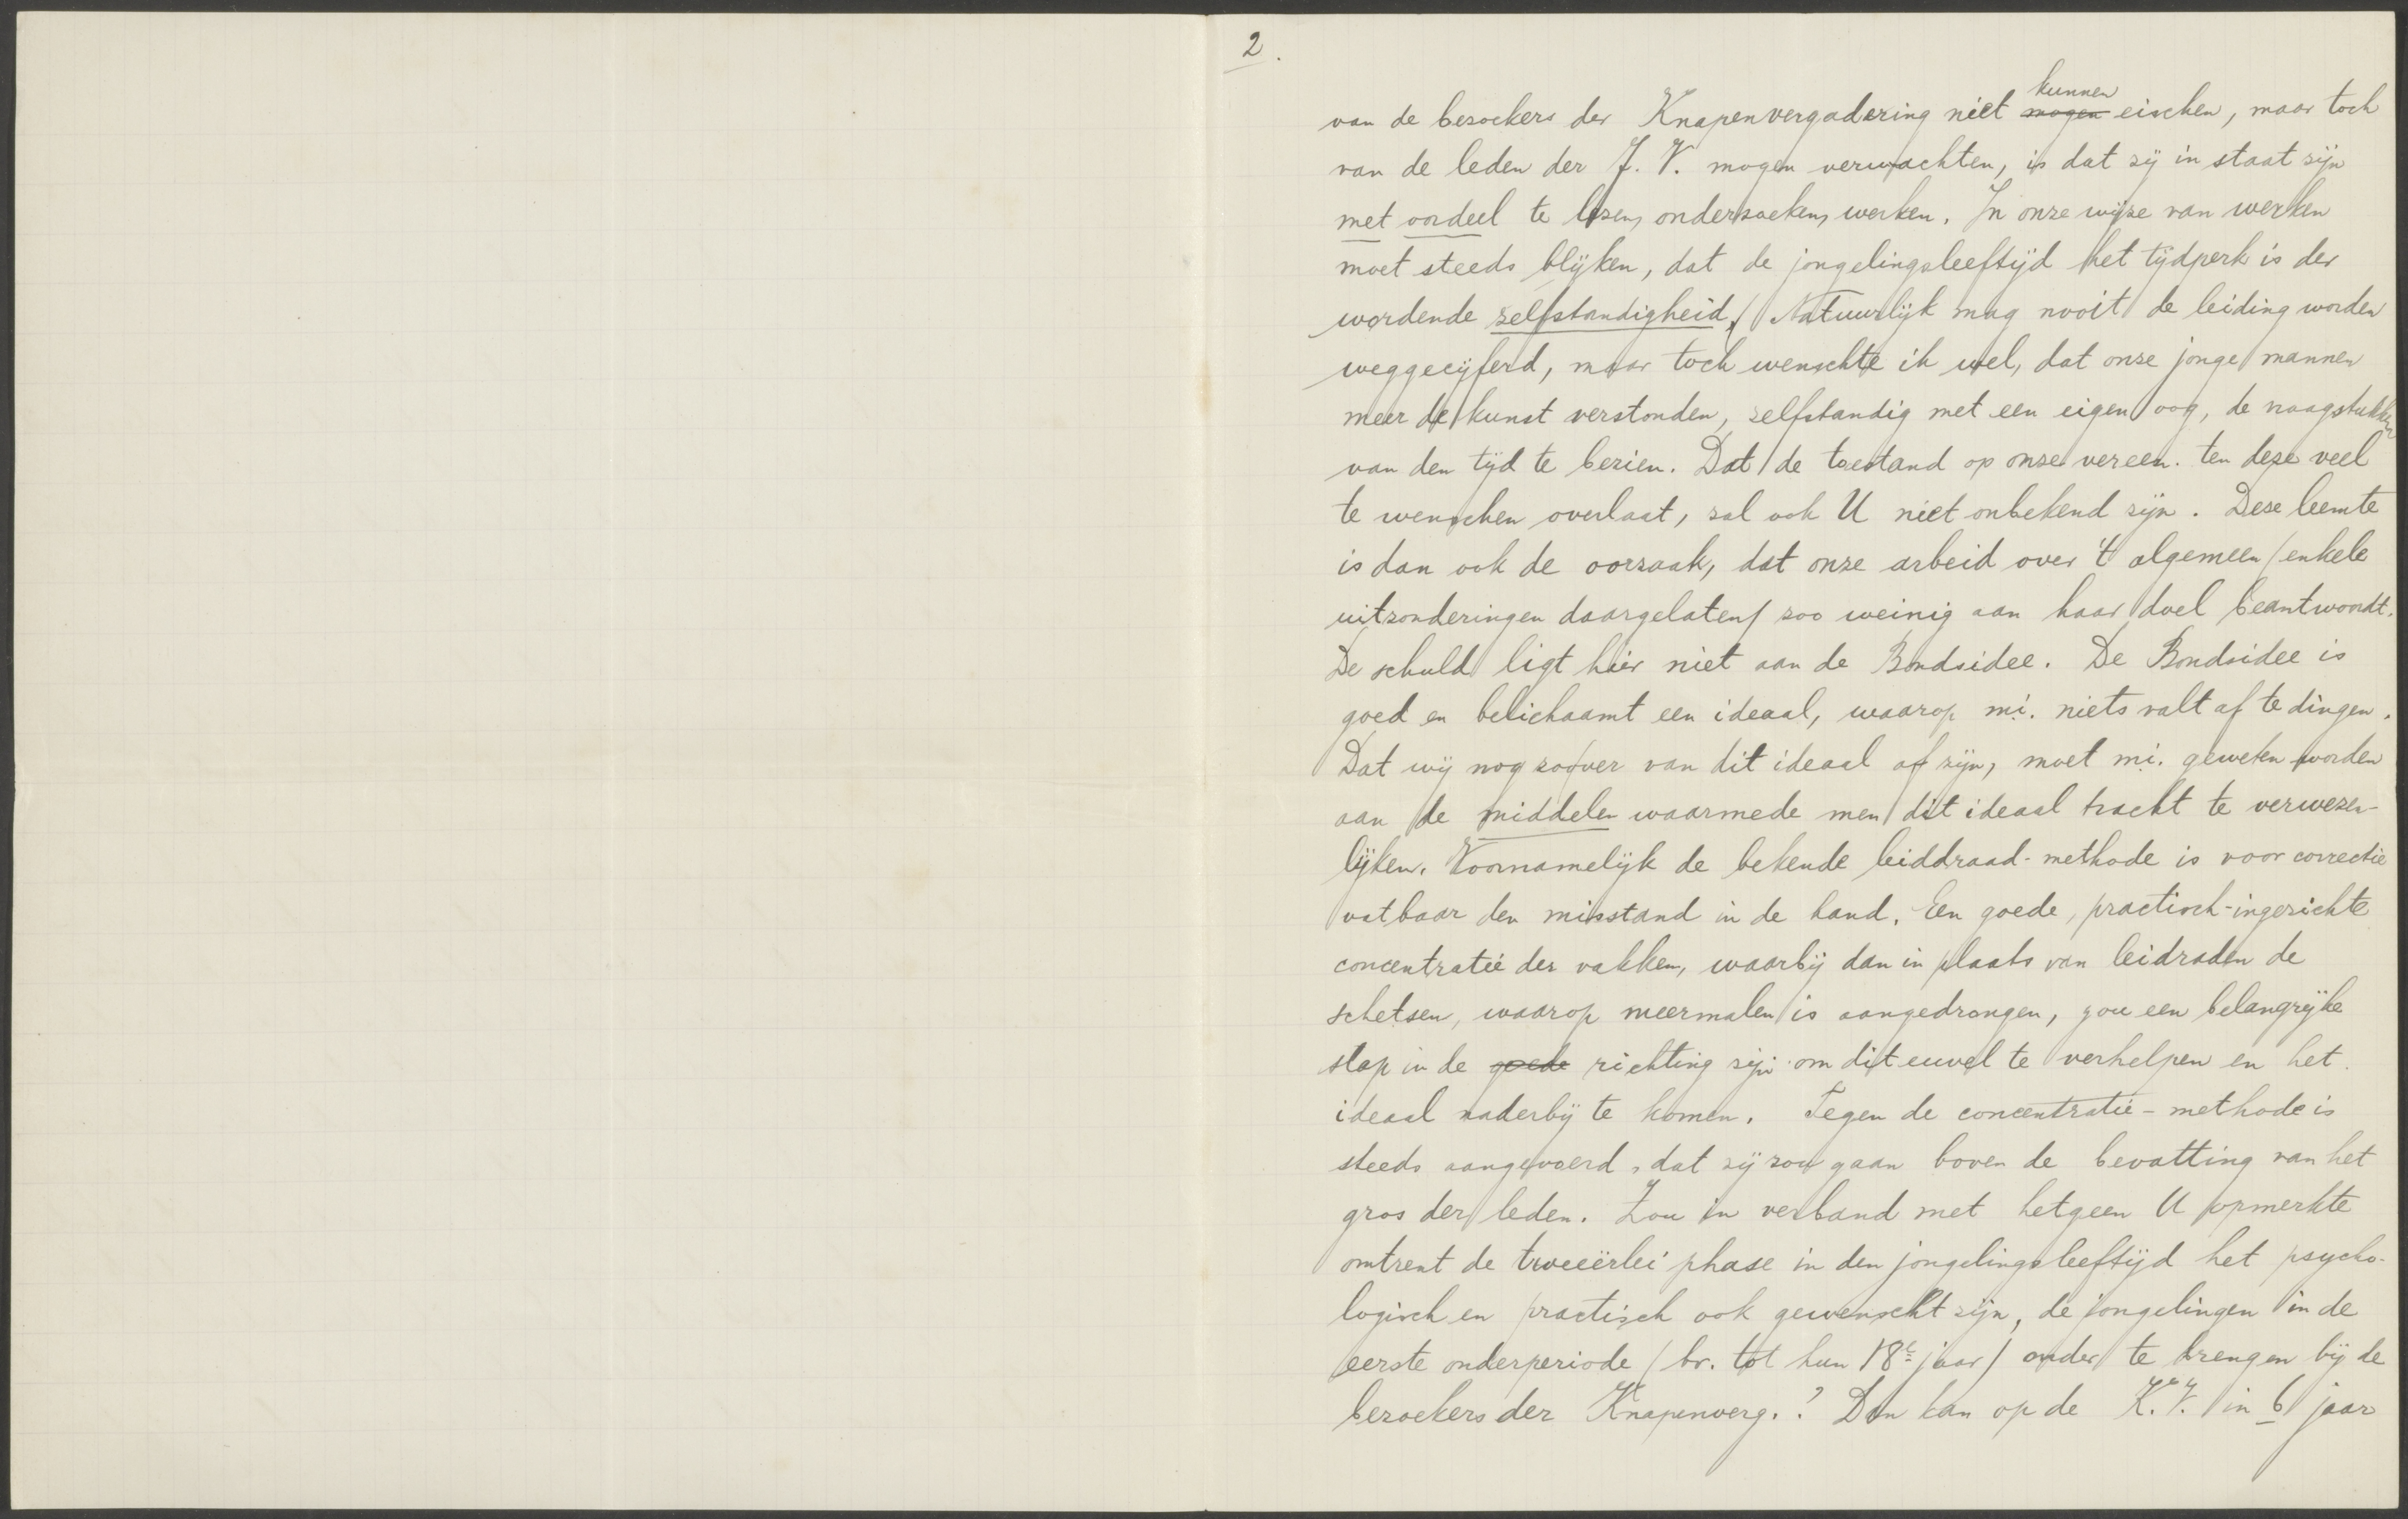 2.
van de bezoekers der Knapenvergadering niet ~~mogen~~ kunnen eischen, maar toch
van de leden der J. V. mogen verwachten, is dat zij in staat zijn
met oordeel te lezen, onderzoeken, werken. In onze wijze van werken
moet steeds blijken, dat de jongelingsleeftijd het tijdperk is der
wordende zelfstandigheid. Natuurlijk mag nooit de leiding worden
weggecijferd, maar toch wenschte ik wel, dat onze jonge mannen
meer de kunst verstonden, zelfstandig met een eigen oog, de vraagstukken
van den tijd te bezien. Dat de toestand op onze vereen. ten deze veel
te wenschen overlaat, zal ook U niet onbekend zijn. Deze leemte
is dan ook de oorzaak, dat onze arbeid over 't algemeen /enkele
uitzonderingen daargelaten/ zoo weinig aan haar doel beantwoordt.
De schuld ligt hier niet aan de Bondsidee. De Bondsidee is
goed en belichaamt een ideaal, waarop m.i. niets valt af te dingen.
Dat wij nog zoover van dit ideaal af zijn, moet m.i. geweten worden
aan de middelen waarmede men dit ideaal tracht te verwezen-
lijken. Voornamelijk de bekende leiddraad-methode is voor correctie
vatbaar den misstand in de hand. Een goede, practisch-ingerichte
concentratie der vakken, waarbij dan in plaats van leidraden de
schetsen, waarop meermalen is aangedrongen, zou een belangrijke
stap in de ~~goede~~ richting zijn om dit euvel te verhelpen en het
ideaal naderbij te komen. Tegen de concentratie-methode is
steeds aangevoerd, dat zij zou gaan boven de bevatting van het
gros der leden. Zou in verband met hetgeen U opmerkte
omtrent de tweeërlei phase in den jongelingsleeftijd het psycho-
logisch en practisch ook gewenscht zijn, de jongelingen in de
eerste onderperiode /bv. tot hun 18e jaar/ onder te brengen bij de
bezoekers der Knapenverg.? Dan kan op de K.V. in 6 jaar